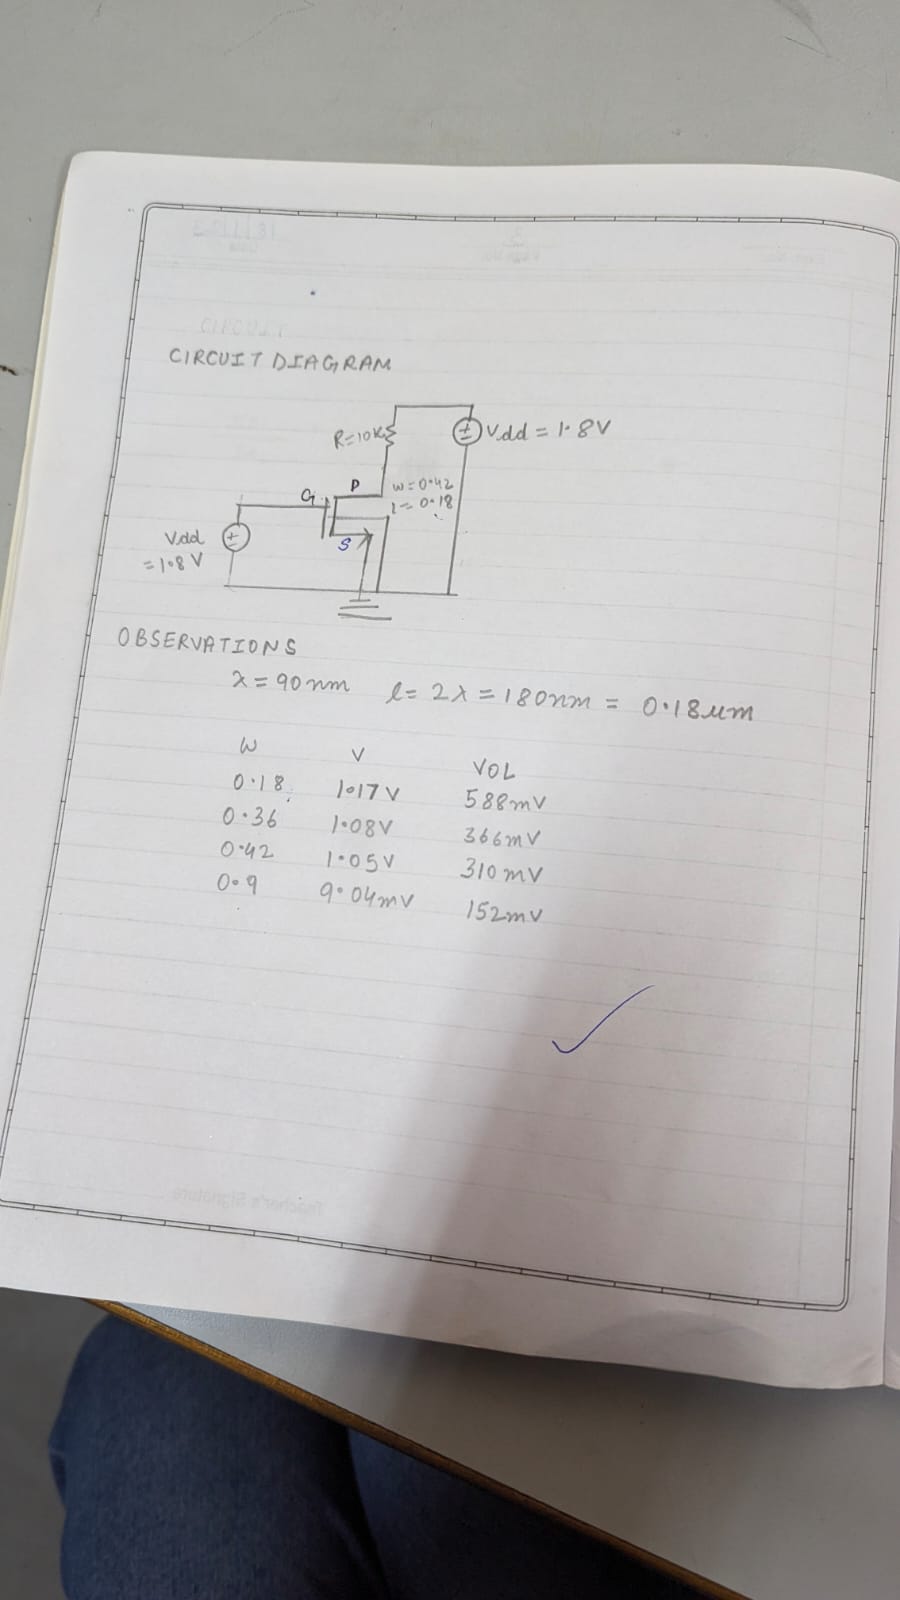 CIRCUIT DIAGRAM
R=10K
Vdd = 1.8V
G
D
w=0.42
l= 0.18
S
Vdd
=1.8V
OBSERVATIONS
λ = 90nm   l= 2λ = 180nm = 0.18um
W   V   VOL
0.18   1.17V   588mV
0.36   1.08V   366mV
0.42   1.05V   310mV
0.9   9.04mV   152mV
Teacher's Signature